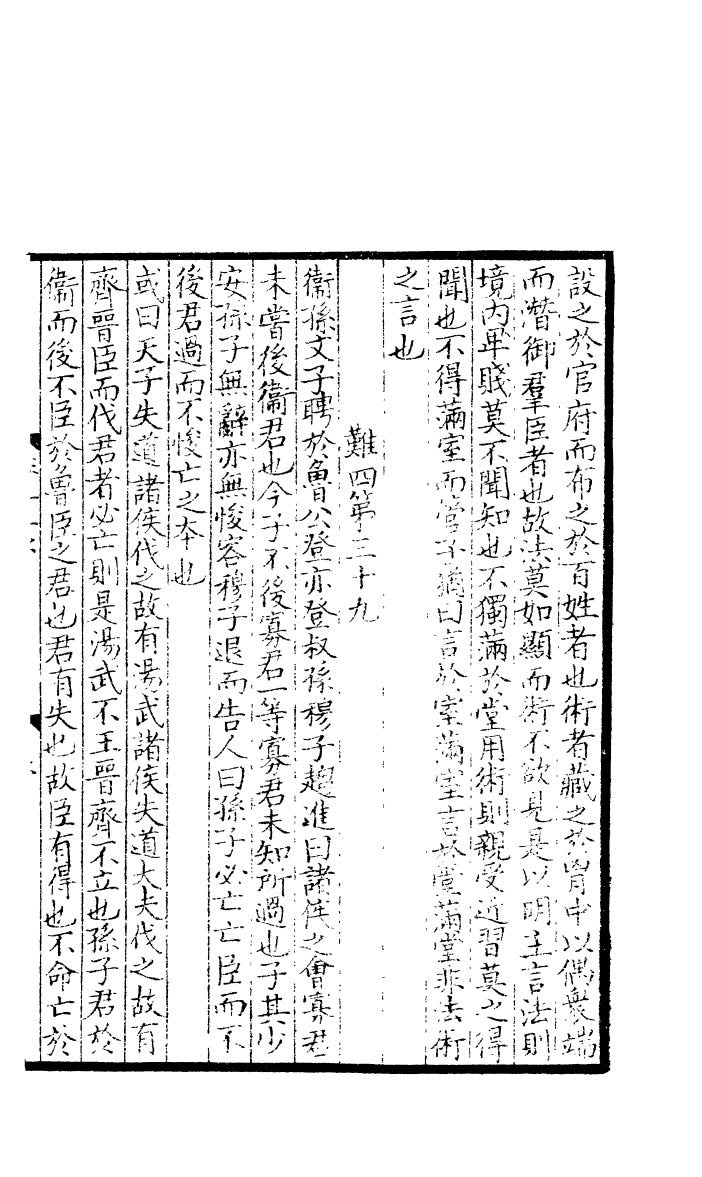 設之於官府而布之於百姓者也術者藏之於胷中以偶衆端
而潛御羣臣者也故法莫如顯而術不欲見是以明主言法則
境内卑賤莫不聞知也不獨滿於堂用術則親愛近習莫之得
聞也不得滿室而管子猶曰言於室滿室言於堂滿堂非法術
之言也
難四第三十九
衞孫文子聘於魯公登亦登叔孫穆子趨進曰諸侯之會寡君
未嘗後衞君也今子不後寡君一等寡君未知所過也子其少
安孫子無辭亦無悛容穆子退而告人曰孫子必亡亡臣而不
後君過而不悛亡之本也
或曰天子失道諸侯伐之故有湯武諸侯失道大夫伐之故有
齊晉臣而伐君者必亡則是湯武不王晉齊不立也孫子君於
衞而後不臣於魯臣之君也君有失也故臣有得也不命亡於